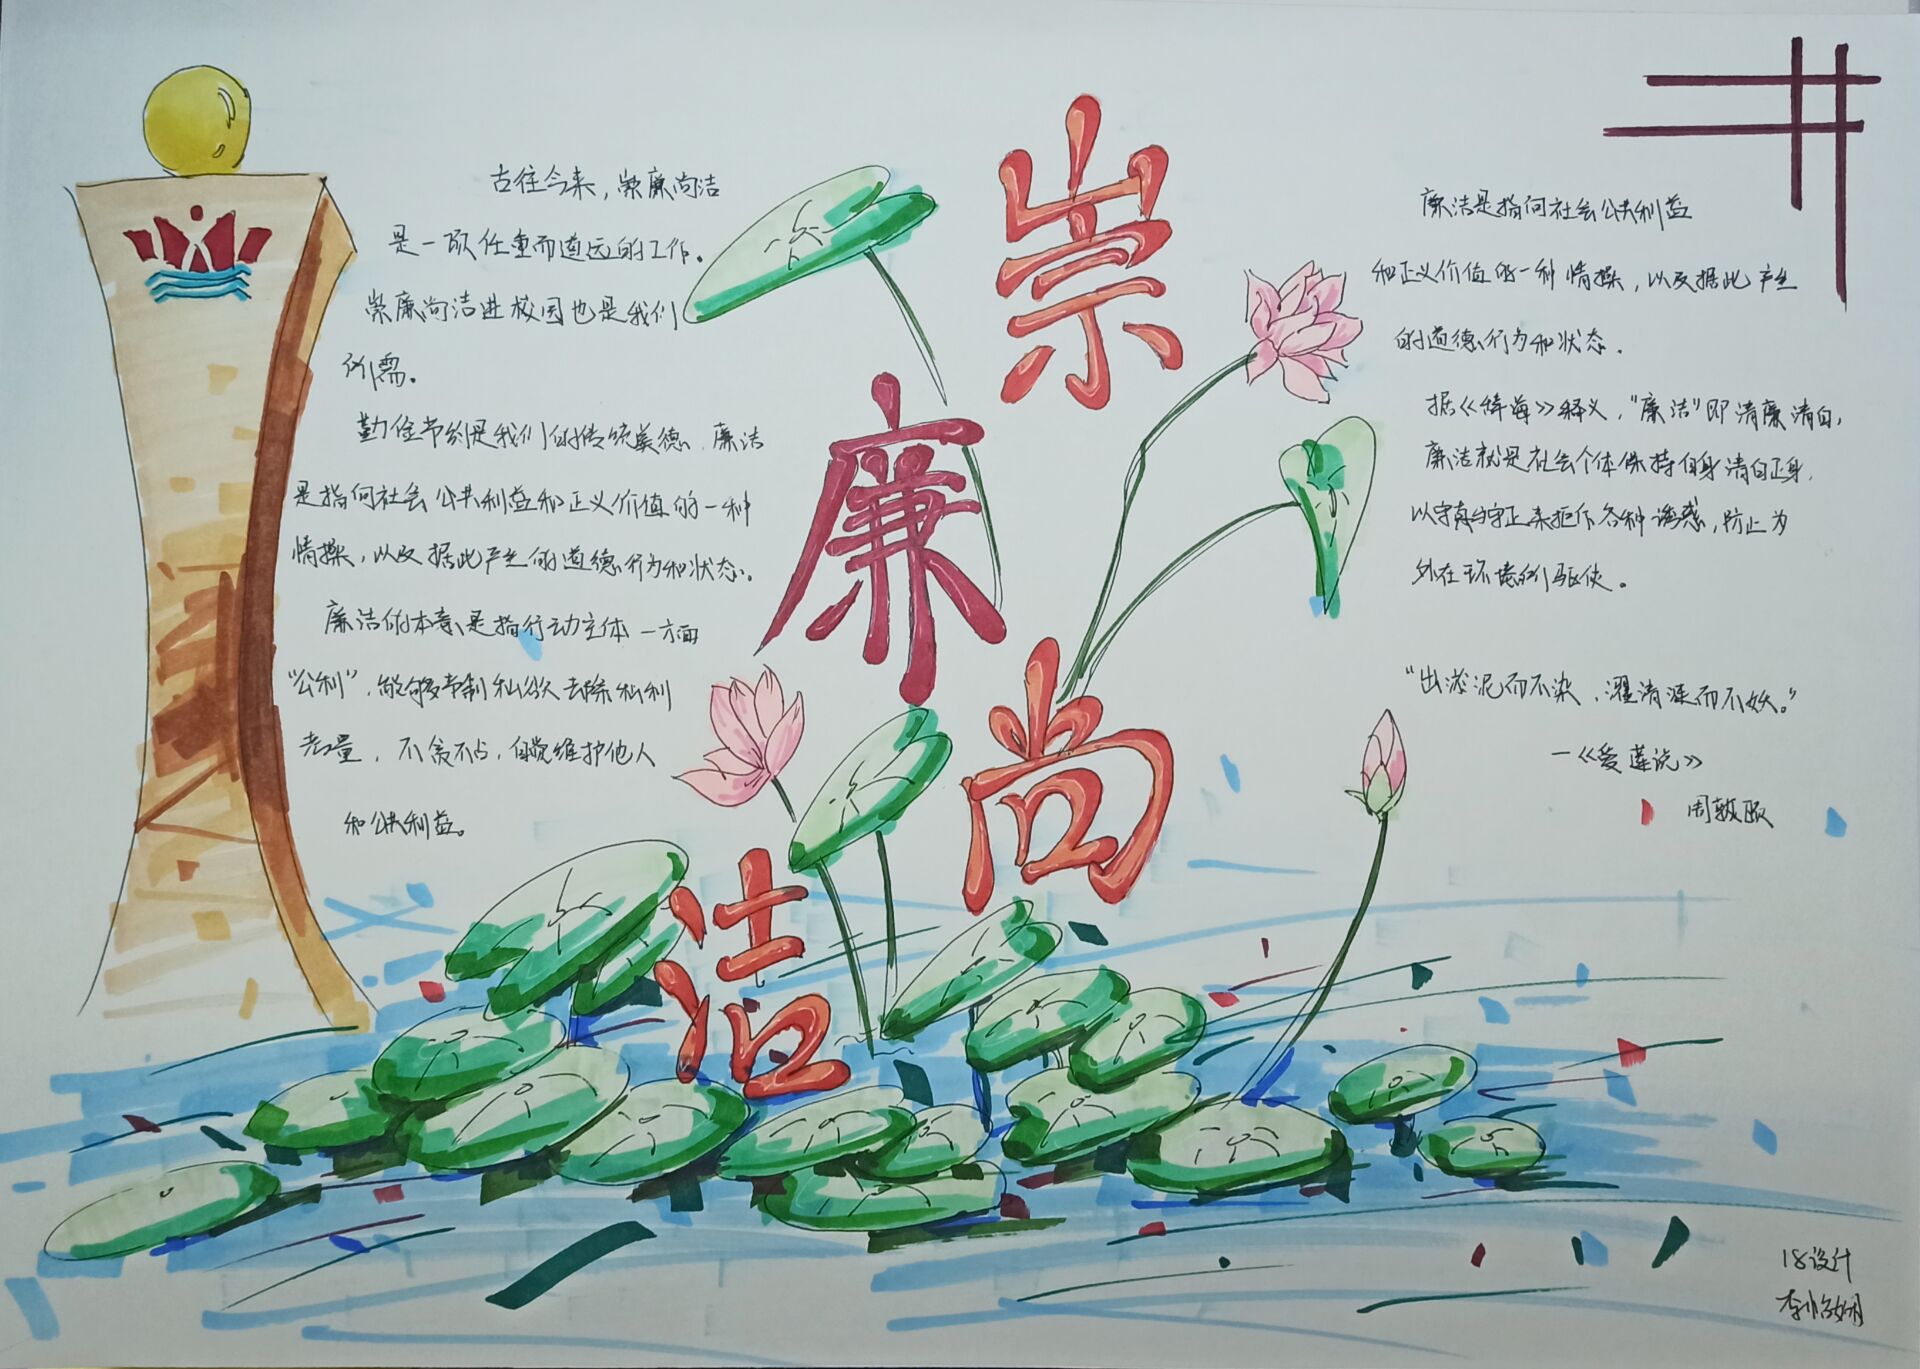 崇
廉
尚
洁
古往今来，崇廉尚洁
是一项任重而道远的工作。
崇廉尚洁进校园也是我们
所需。
勤俭节约是我们的传统美德，廉洁
是指向社会公共利益和正义价值的一种
情操，以及据此产生的道德行为和状态。
廉洁的本意是指行动主体一方面
“公利”，能够节制私欲去除私利
考量，不贪不占，自觉维护他人
和公共利益。
廉洁是指向社会公共利益
和正义价值的一种情操，以及据此产生
的道德行为和状态。
据《辞海》释义，“廉洁”即清廉清白，
廉洁就是社会个体保持自身清白正身，
以守真守正来拒斥各种诱惑，防止为
外在环境所驱使。
“出淤泥而不染，濯清涟而不妖。”
—《爱莲说》
周敦颐
18设计